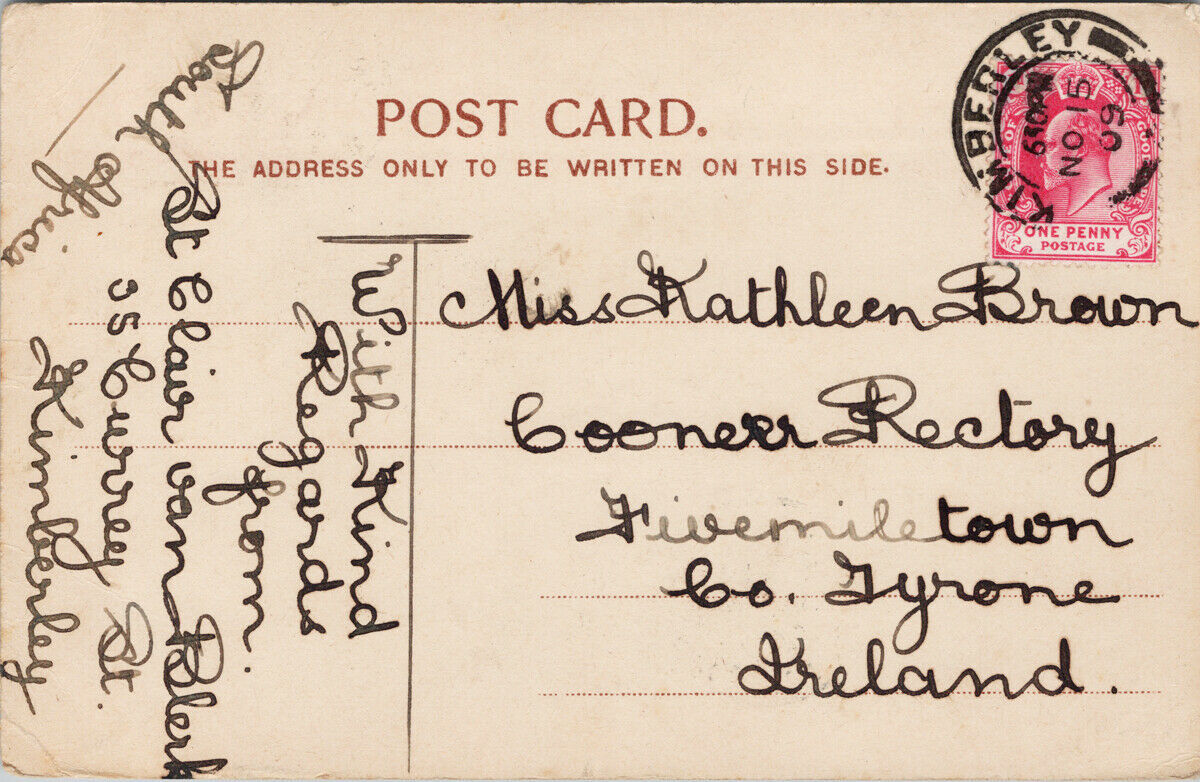 POST CARD.
THE ADDRESS ONLY TO BE WRITTEN ON THIS SIDE.
KIMBERLEY
NO 15
09
OF GOOD
ONE PENNY
POSTAGE
Miss Kathleen Brown
Cooneer Rectory
Fivemiletown
Co. Tyrone
Ireland.
With Kind
Regards
from.
St Clair van Blerk
35 Currey St.
Kimberley
South Africa